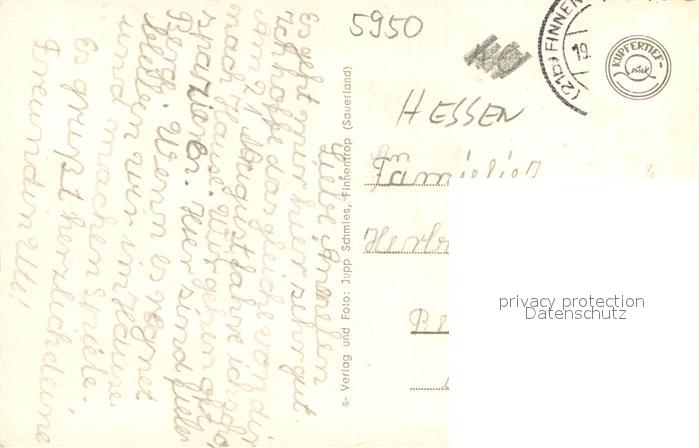 5950
(21b) FINNEN
19
KUPFERTIEF-
HESSEN
Familie
Herbr
privacy protection
Datenschutz
s- Verlag und Foto: Jupp Schmies, Finnentrop (Sauerland)
Liebe
Es geht mir hier sehr gut.
Ich hoffe das gleiche von dir
Am 21 August fahre ich schon
nach Hause. Wir gehen oft
spazieren. Hier sind viele
Berge. Wenn es regnet
bleiben wir im Hause
und machen Spiele.
Es grüßt herzlich deine
Freundin Uli!